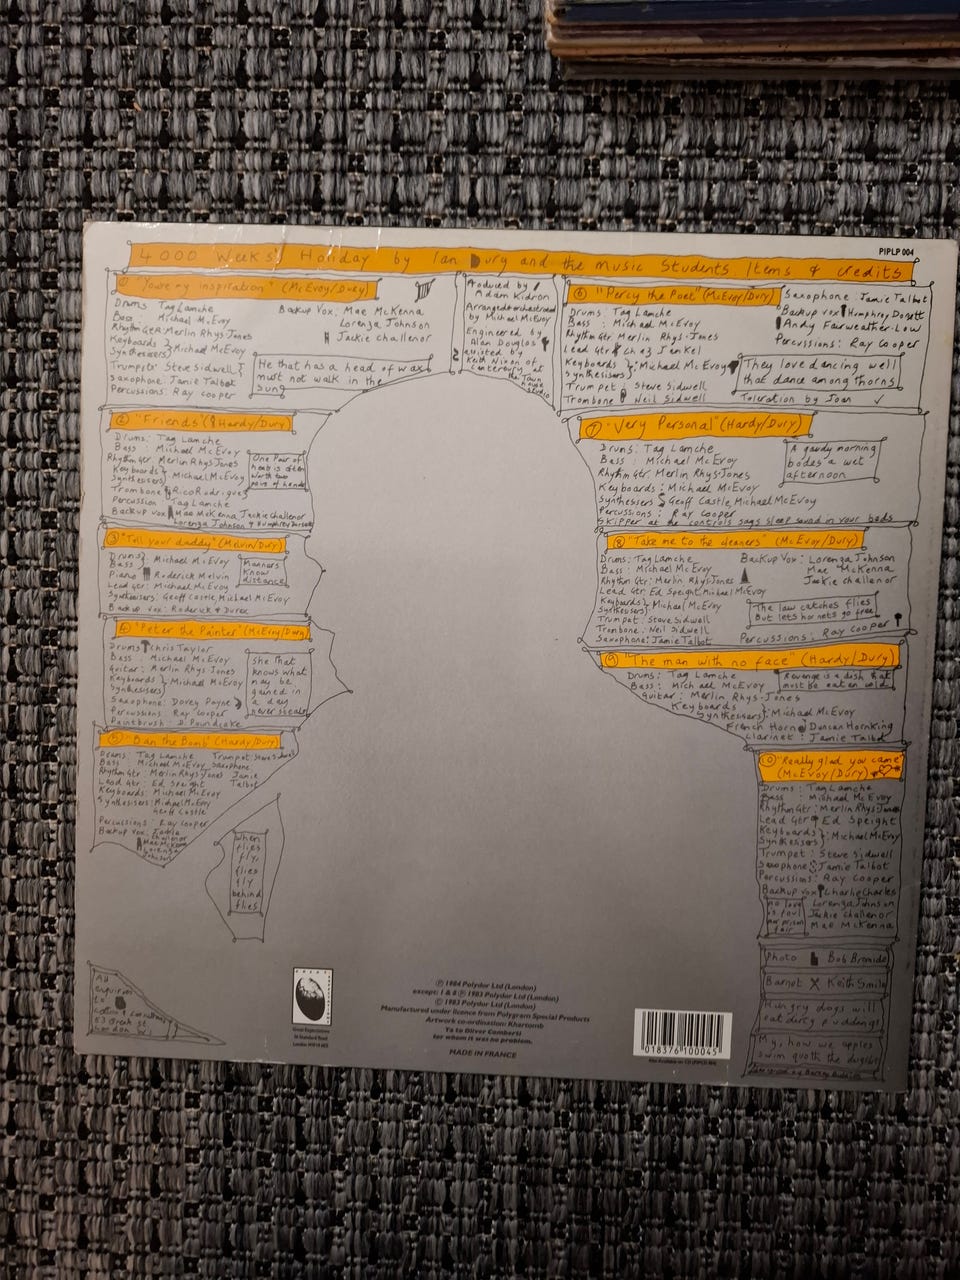 PIPLP 004
4000 Weeks' Holiday by Ian Dury and the music Students Items & credits
① "You're my inspiration" (McEvoy/Dury)
Drums: Tag Lamche
Bass: Michael McEvoy
Rhythm Gtr: Merlin Rhys Jones
Keyboards
Synthesisers } Michael McEvoy
Trumpets: Steve Sidwell
Saxophone: Jamie Talbot
Percussions: Ray Cooper
Backup Vox: Mae McKenna
Lorenza Johnson
Jackie Challenor
He that has a head of wax
must not walk in the
sun
Produced by
Adam Kidron
Arranged & orchestrated
by Michael McEvoy
Engineered by
Alan Douglas
assisted by
Keith Nixon of
Canterbury, at
the Town
house
studio
② "Friends" (Hardy/Dury)
Drums: Tag Lamche
Bass: Michael McEvoy
Rhythm Gtr: Merlin Rhys Jones
Keyboards
Synthesisers } Michael McEvoy
Trombone: Rico Rodrigues
Percussion: Tag Lamche
Backup vox: Mae McKenna, Jackie Challenor
Lorenza Johnson &
One Pair of
heels is often
worth two
pair of hands
③ "Tell your daddy" (Melvin/Dury)
Drums
Bass } Michael McEvoy
Piano Roderick Melvin
Lead Gtr: Michael McEvoy
Synthesisers: Geoff Castle, Michael McEvoy
Backup vox: Roderick & Durex
Manners
Know
distance
④ "Peter the Painter" (McEvoy/Dury)
Drums: Chris Taylor
Bass: Michael McEvoy
Guitar: Merlin Rhys Jones
Keyboards
Synthesisers } Michael McEvoy
Saxophone: Davey Payne
Percussions: Ray Cooper
Paintbrush: D. Poundcake
She that
knows what
may be
gained in
a day
never steals
⑤ "Ban the Bomb" (Hardy/Dury)
Drums: Tag Lamche Trumpet: Steve Sidwell
Bass: Michael McEvoy Saxophone:
Rhythm Gtr: Merlin Rhys Jones Jamie
Lead Gtr: Ed Speight Talbot
Keyboards: Michael McEvoy
Synthesisers: Michael McEvoy
Geoff Castle
Percussions: Ray Cooper
Backup Vox: Jackie
Challenor
Mae McKenna
Lorenza
Johnson
When
flies
fly,
flies
fly
behind
flies
⑥ "Percy the Poet" (McEvoy/Dury)
Drums: Tag Lamche
Bass: Michael McEvoy
Rhythm Gtr: Merlin Rhys-Jones
Lead Gtr: Chaz Jankel
Keyboards
Synthesisers } Michael McEvoy
Trumpet: Steve Sidwell
Trombone: Neil Sidwell
Saxophone: Jamie Talbot
Backup vox: Humphrey Dorsett
Andy Fairweather-Low
Percussions: Ray Cooper
They love dancing well
that dance among thorns
Toleration by Joan
⑦ "Very Personal" (Hardy/Dury)
Drums: Tag Lamche
Bass: Michael McEvoy
Rhythm Gtr: Merlin Rhys-Jones
Keyboards: Michael McEvoy
Synthesisers: Geoff Castle, Michael McEvoy
Percussions: Ray Cooper
Skipper at the controls says sleep sound in your beds
A gaudy morning
bodes a wet
afternoon
⑧ "Take me to the cleaners" (McEvoy/Dury)
Drums: Tag Lamche
Bass: Michael McEvoy
Rhythm Gtr: Merlin Rhys-Jones
Lead Gtr: Ed Speight, Michael McEvoy
Keyboards
Synthesisers } Michael McEvoy
Trumpet: Steve Sidwell
Trombone: Neil Sidwell
Saxophone: Jamie Talbot
Backup Vox: Lorenza Johnson
Mae McKenna
Jackie Challenor
The law catches flies
But lets hornets go free
Percussions: Ray Cooper
⑨ "The man with no face" (Hardy/Dury)
Drums: Tag Lamche
Bass: Michael McEvoy
Guitar: Merlin Rhys-Jones
Keyboards
Synthesisers } Michael McEvoy
French Horn: Duncan Hornking
Clarinet: Jamie Talbot
Revenge is a dish that
must be eaten cold
⑩ "Really glad you came"
(McEvoy/Dury)
Drums: Tag Lamche
Bass: Michael McEvoy
Rhythm Gtr: Merlin Rhys Jones
Lead Gtr Ed Speight
Keyboards
Synthesisers } Michael McEvoy
Trumpet: Steve Sidwell
Saxophone: Jamie Talbot
Percussions: Ray Cooper
Backup vox: Charlie Charles
Lorenza Johnson
Jackie Challenor
Mae McKenna
no love
is foul
nor prison
fair
Photo Bob Bromide
Barnet X Keith Smile
Hungry dogs will
eat dirty puddings
My, how we apples
swim quoth the
Ad
enquiries
to
Great Expectations
℗ 1984 Polydor Ltd (London)
except: 1 & 8 ℗ 1983 Polydor Ltd (London)
© 1983 Polydor Ltd (London)
Manufactured under licence from Polygram Special Products
Artwork co-ordination: Khartomb
Ta to Oliver Comberti
for whom it was no problem.
MADE IN FRANCE
018376 100045
Also Available on CD (PIPCD 004)